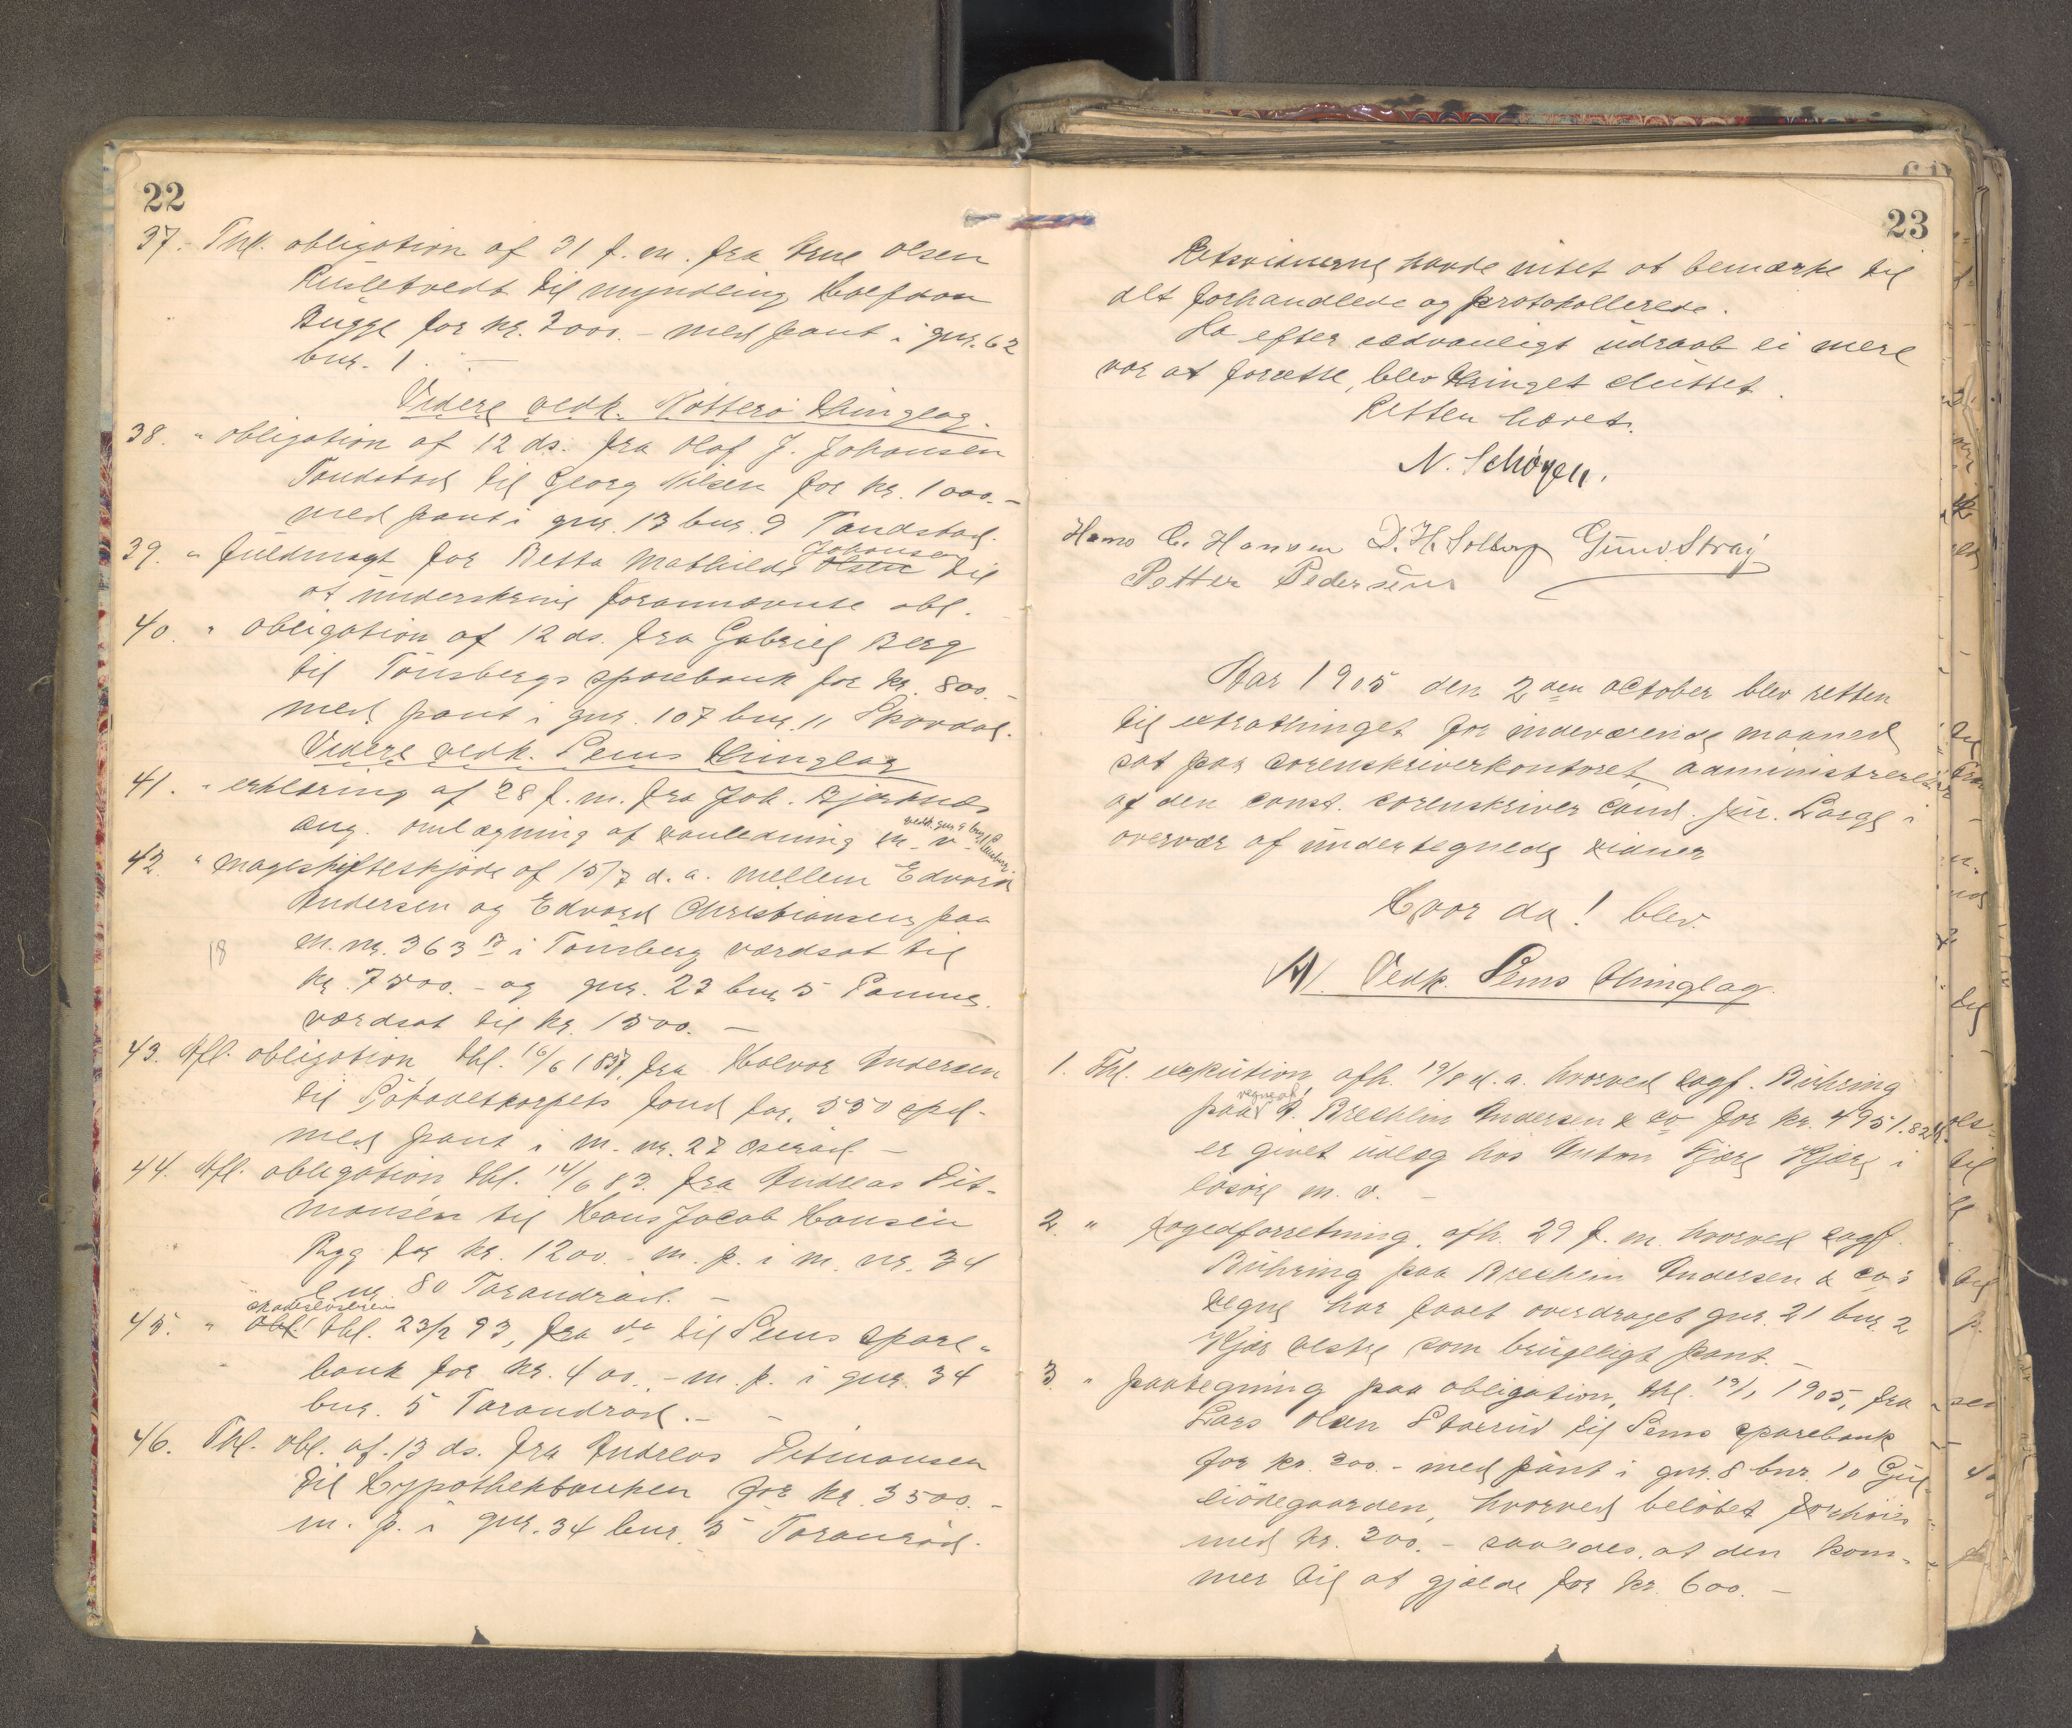 22
37. Thl. obligation af 31 f. m. fra Arne Olsen
Rusletvedt til myndling Halfdan
Bugge for kr. 2000.- med pant i gnr. 62
bnr. 1. -
Videre vedk. Nötterö thinglag.
38. " obligation af 12 ds. fra Olaf J. Johansen
Tandstad til Georg Nilsen for kr. 1000.-
med pant i gnr. 13 bnr. 9 Tandstad.
39. " fuldmagt for Betta Mathilde Johansen til
at underskrive forannævnte obl.
40. " obligation af 12 ds. fra Gabriel Berg
til Tönsbergs sparebank for kr. 800.-
med pant i gnr. 107 bnr. 11 Skovdal.
Videre vedk. Sems thinglag
41. " erklæring af 28 f. m. fra Joh. Bjerknes
ang. omlægning af vandledning m. v.
42. " mageskifteskjöde af 15/7 d. a. mellem Edvard
Andersen og Edvard Christiansen paa
18 m. nr. 363 B i Tönsberg værdsat til
kr. 7500.- og gnr. 23 bnr. 5
værdsat til kr. 1500. -
43. Afl. obligation thl. 16/6 1857, fra Halvor Andersen
til Söhavetkorpsets fond for 550 spd.
med pant i m. nr. 27 Oseröd -
44. Afl. obligation, thl. 14/6 83. fra Andreas Dit-
mansen til Hans Jacob Hansen
Ryg for kr. 1200.- m. p. i m. nr. 34
l. nr. 80 Tarandröd. -
45. " skadeslösbrev thl. 23/2 93, fra do til Sems spare-
bank for kr. 400.- m. p. i gnr. 34
bnr. 5 Tarandröd. -
46. Thl. obl. af 13 ds. fra Andreas Ditmansen
til Hypothekbanken for kr. 3500.-
m. p. i gnr. 34 bnr. 5 Taranröd.
23
Retsvidnerne havde intet at bemærke til
det forhandlede og protokollerede.
Da efter sædvanligt udraab ei mere
var at forrette, blev thinget sluttet.
Retten hævet.
N. Schöyen.
Hans C. Hansen D. H. Solberg Gunv. Stray
Petter Pedersen
Aar 1905 den 2den october blev retten
til extrathinget for indeværende maaned
sat paa sorenskriverkontoret administreret
af den const. sorenskriver cand. jur. Lange i
overvær af undertegnede vidner
Hvor da! blev
A. Vedk. Sems thinglag.
1. Thl. exekution, afh. 19/8 d. a. hvorved sagf. Bühring
paa vegne af A. Brechlin Andersen & co for kr. 4951.82
er givet udlæg hos Anton Kjær, Kjær i
lösöre m. v. -
2. " fogedforretning, afh. 29 f. m. hvorved sagf.
Bühring paa Brechlin Andersen & co's
vegne har faaet overdraget gnr. 21 bnr. 2
Kjær östre som brugeligt pant. -
3. " paategning paa obligation, thl. 19/1 1905, fra
Lars Olsen Staerud til Sems sparebank
for kr. 300.- med pant i gnr. 8 bnr. 10 Gul-
liödegaarden, hvorved belöbet forhöies
med kr. 300.- saaledes, at den kom-
mer til at gjælde for kr. 600. -